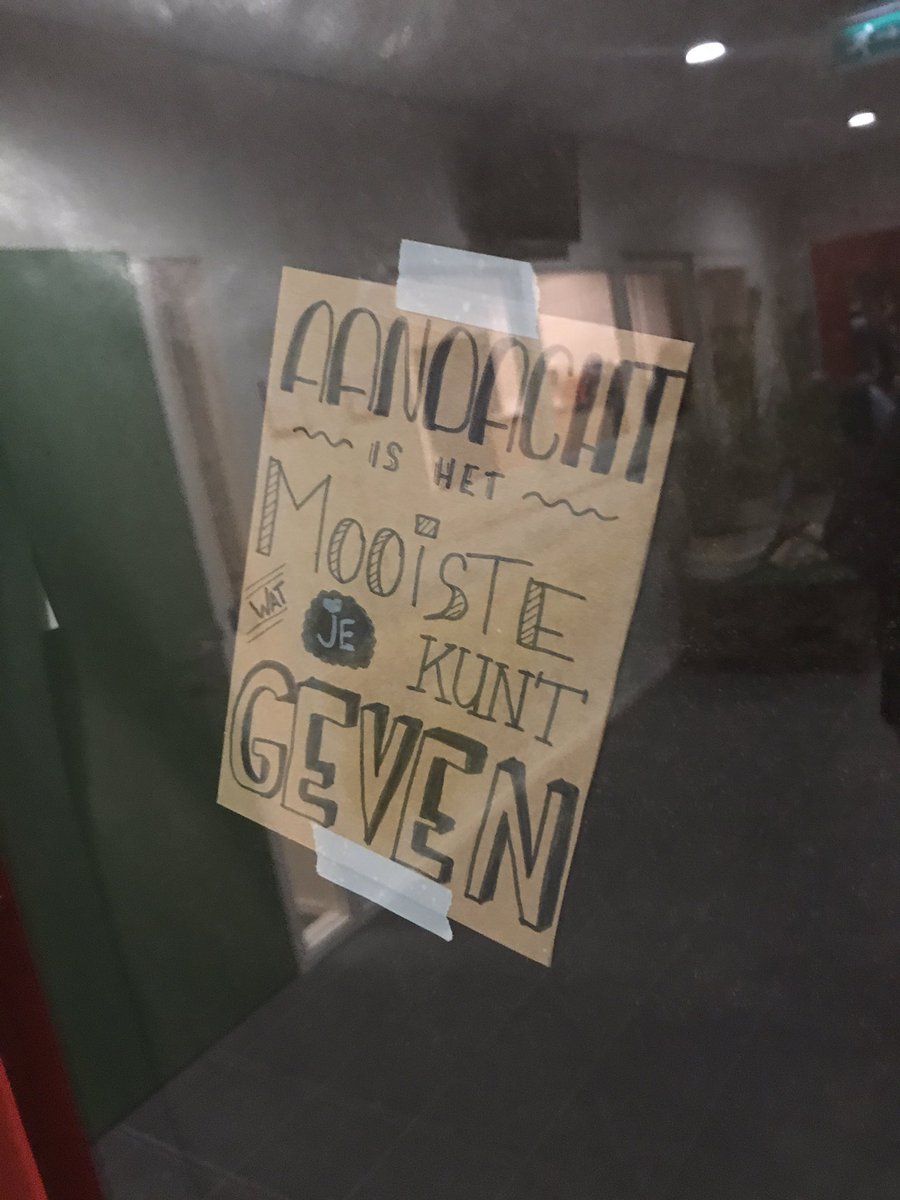 AANDACHT
IS HET
MOOiSTE
WAT JE KUNT
GEVEN